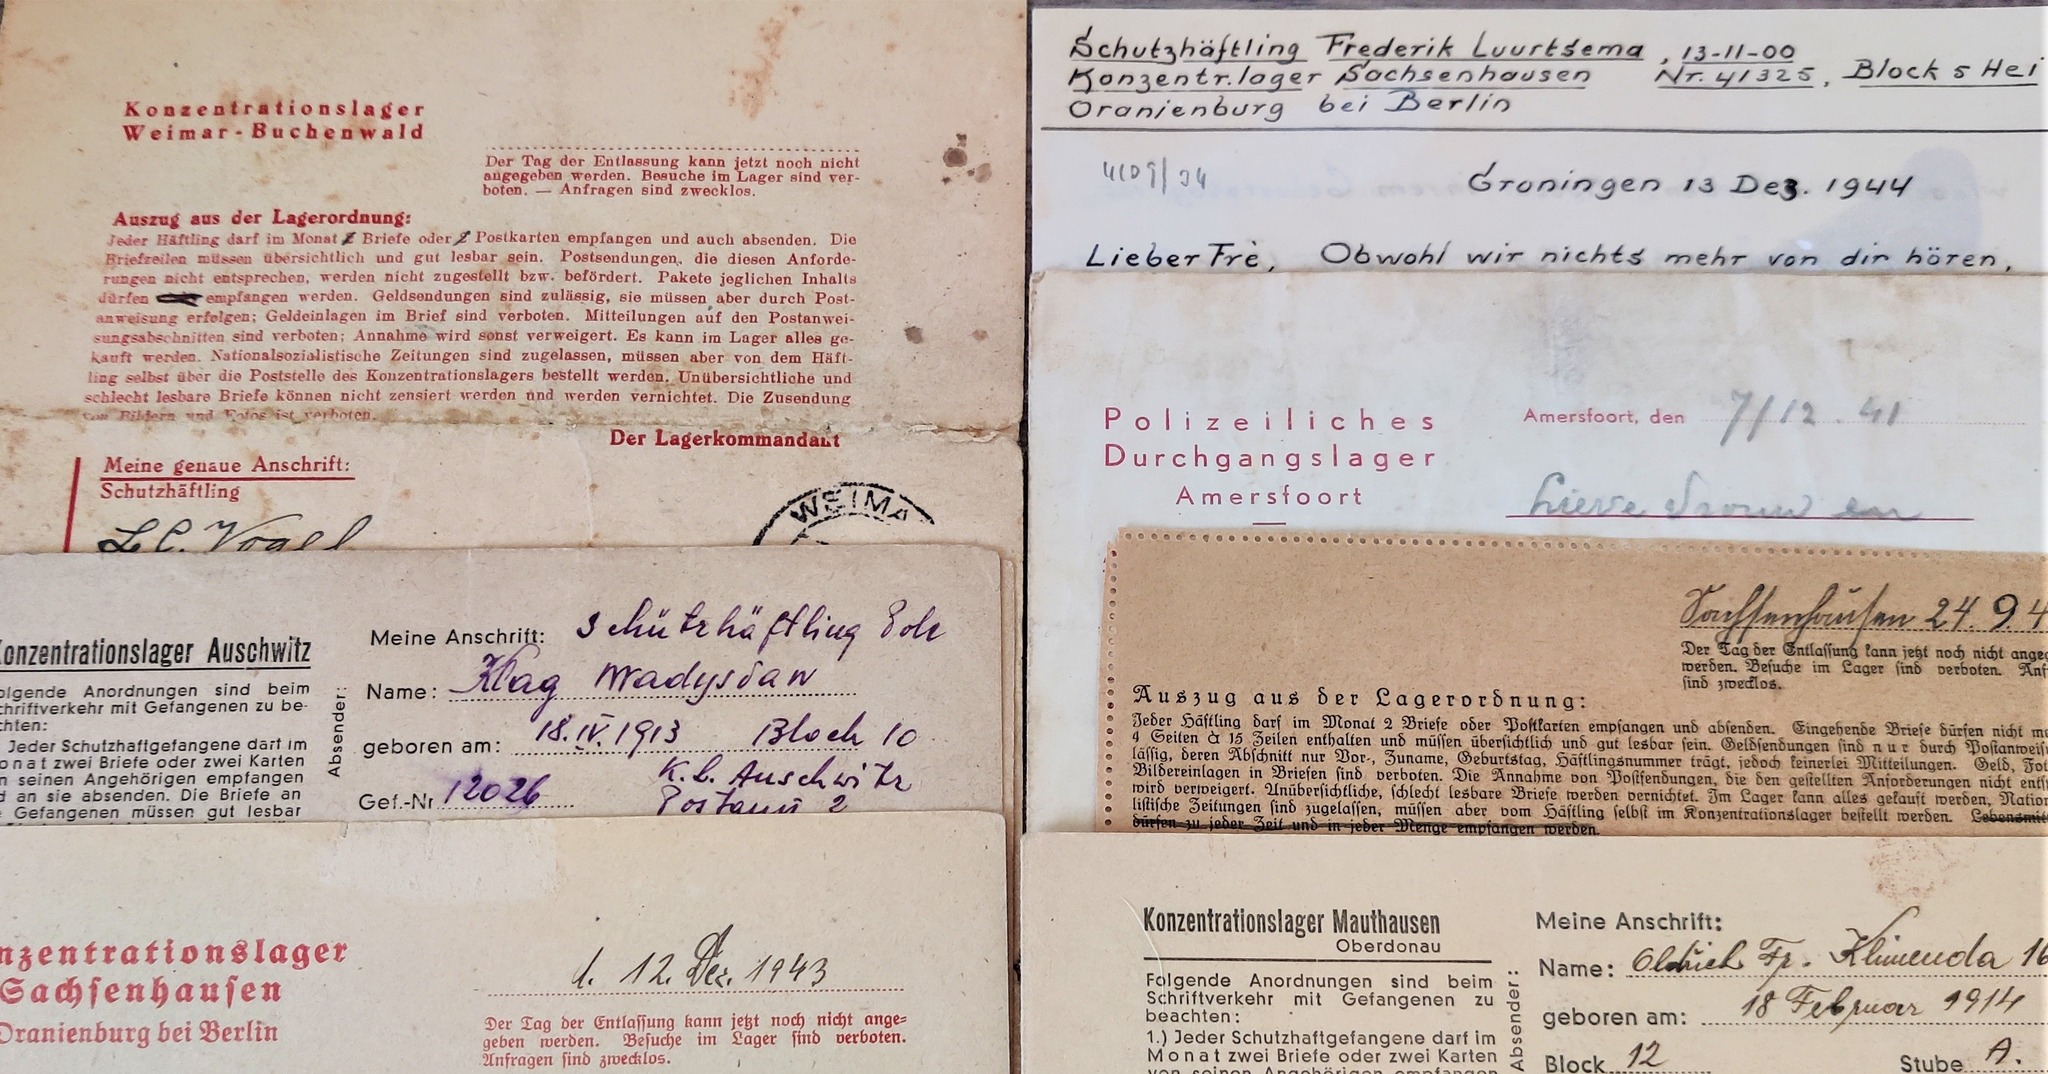 Konzentrationslager
Weimar-Buchenwald
Der Tag der Entlassung kann jetzt noch nicht
angegeben werden. Besuche im Lager sind ver-
boten. — Anfragen sind zwecklos.
Auszug aus der Lagerordnung:
Jeder Häftling darf im Monat Briefe oder Postkarten empfangen und auch absenden. Die
Briefzeilen müssen übersichtlich und gut lesbar sein. Postsendungen, die diesen Anforde-
rungen nicht entsprechen, werden nicht zugestellt bzw. befördert. Pakete jeglichen Inhalts
dürfen empfangen werden. Geldsendungen sind zulässig, sie müssen aber durch Post-
anweisung erfolgen; Geldeinlagen im Brief sind verboten. Mitteilungen auf den Postanwei-
sungsabschnitten sind verboten; Annahme wird sonst verweigert. Es kann im Lager alles ge-
kauft werden. Nationalsozialistische Zeitungen sind zugelassen, müssen aber von dem Häft-
ling selbst über die Poststelle des Konzentrationslagers bestellt werden. Unübersichtliche und
schlecht lesbare Briefe können nicht zensiert werden und werden vernichtet. Die Zusendung
von Bildern und Fotos ist verboten.
Der Lagerkommandant
Meine genaue Anschrift:
Schutzhäftling
L.C. Vogel
WEIMA
Konzentrationslager Auschwitz
olgende Anordnungen sind beim
chriftverkehr mit Gefangenen zu be-
chten:
Jeder Schutzhaftgefangene darf im
onat zwei Briefe oder zwei Karten
n seinen Angehörigen empfangen
d an sie absenden. Die Briefe an
Gefangenen müssen gut lesbar
Absender:
Meine Anschrift: Schützhäftling Pole
Name: Kłag Władysław
geboren am: 18.IV.1913 Block 10
Gef.-Nr 12026 K.L. Auschwitz
Postamt 2
nzentrationslager
Sachsenhausen
Oranienburg bei Berlin
d. 12. Dez. 1943
Der Tag der Entlassung kann jetzt noch nicht ange-
geben werden. Besuche im Lager sind verboten.
Anfragen sind zwecklos.
Schutzhäftling Frederik Luurtsema, 13-11-00
Konzentr.lager Sachsenhausen Nr. 41325, Block 5 Hei
Oranienburg bei Berlin
Groningen 13 Dez. 1944
Lieber Frè, Obwohl wir nichts mehr von dir hören,
Polizeiliches
Durchgangslager
Amersfoort
Amersfoort, den 7/12.41
Lieve Vrouw en
Sachsenhausen 24.9.4
Der Tag der Entlassung kann jetzt noch nicht ange
werden. Besuche im Lager sind verboten. Anf
sind zwecklos.
Auszug aus der Lagerordnung:
Jeder Häftling darf im Monat 2 Briefe oder Postkarten empfangen und absenden. Eingehende Briefe dürfen nicht m
4 Seiten à 15 Zeilen enthalten und müssen übersichtlich und gut lesbar sein. Geldsendungen sind nur durch Postanweis
lässig, deren Abschnitt nur Vor-, Zuname, Geburtstag, Häftlingsnummer trägt, jedoch keinerlei Mitteilungen. Geld, Fot
Bildereinlagen in Briefen sind verboten. Die Annahme von Postsendungen, die den gestellten Anforderungen nicht ents
wird verweigert. Unübersichtliche, schlecht lesbare Briefe werden vernichtet. Im Lager kann alles gekauft werden, Nation
listische Zeitungen sind zugelassen, müssen aber vom Häftling selbst im Konzentrationslager bestellt werden. Lebensmitt
dürfen zu jeder Zeit und in jeder Menge empfangen werden.
Konzentrationslager Mauthausen
Oberdonau
Folgende Anordnungen sind beim
Schriftverkehr mit Gefangenen zu
beachten:
1.) Jeder Schutzhaftgefangene darf im
Monat zwei Briefe oder zwei Karten
von seinen Angehörigen empfangen
Absender:
Meine Anschrift:
Name: Oldřich Fr. Klimenda 16
geboren am: 18 Februar 1914
Block 12 Stube A.